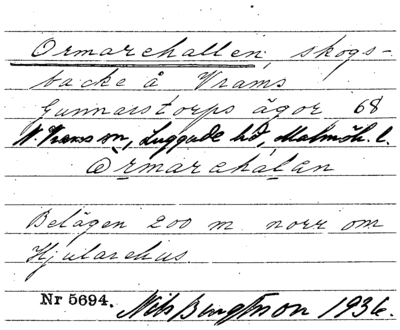 Ormarehallen, skogs-
backe å Vrams
Gunnarstorps ägor 68
N. Vrams sn, Luggude hd, Malmöh. l.
Ormarehálen
Belägen 200 m norr om
Hjularehus.
Nr 5694. Nils Bengtson 1936.